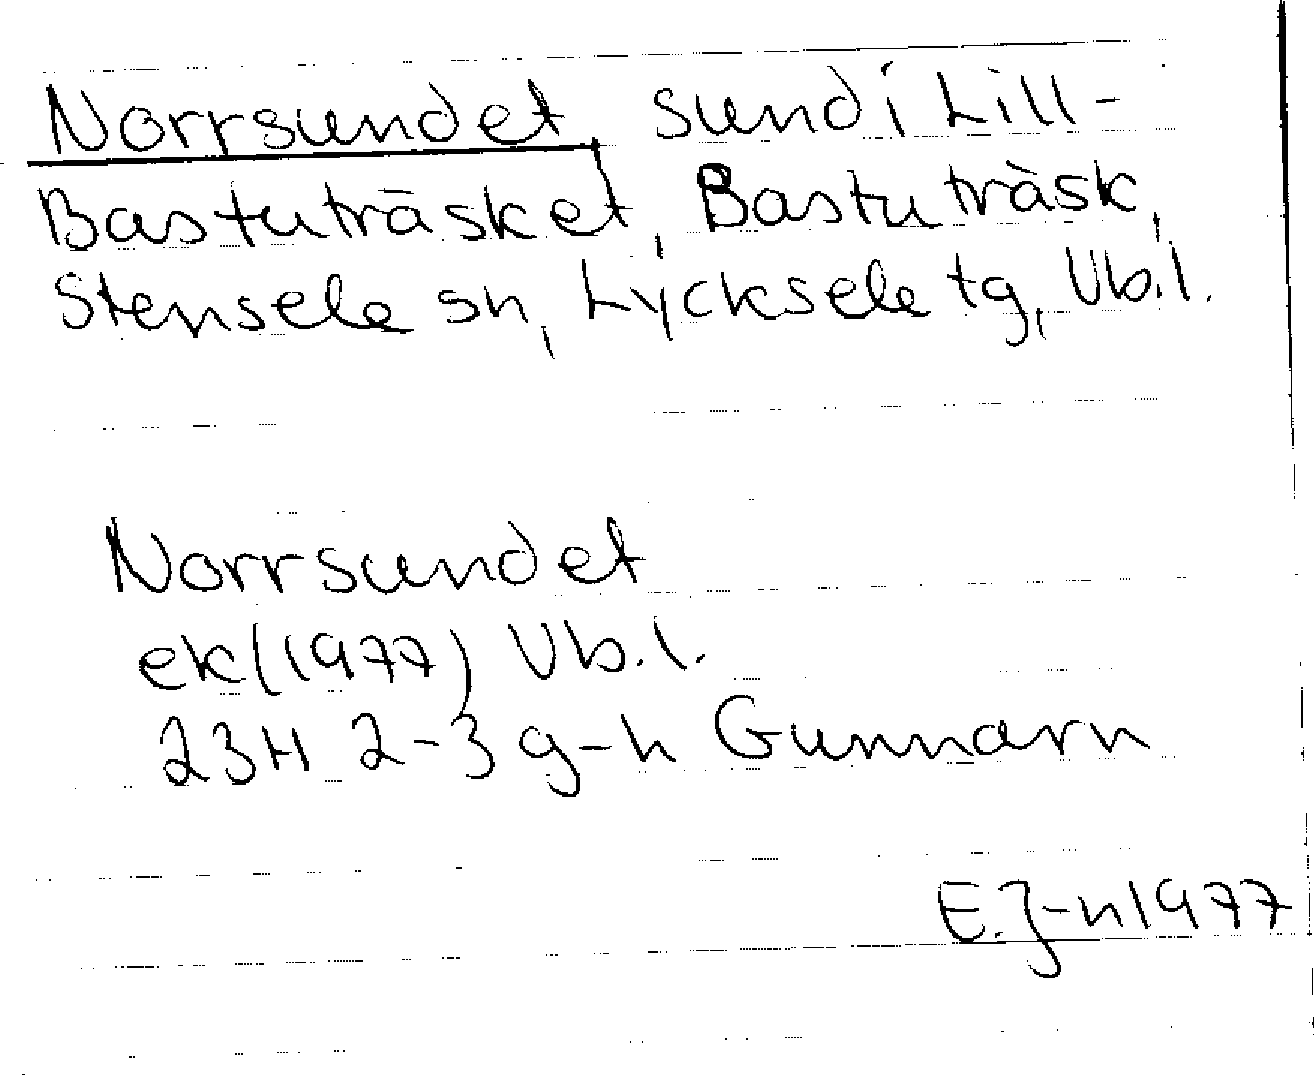 Norrsundet, sund i Lill-
Bastuträsket, Bastuträsk,
Stensele sn, Lycksele tg, Vb.l.
Norrsundet
ek (1977) Vb.l.
23H 2-3 g-h Gunnarn
E.J-n 1977